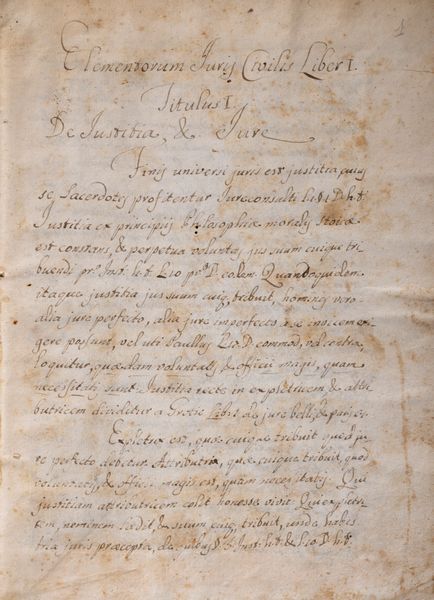 1
Elementorum Juris Civilis Liber I.
Titulus I.
De Justitia, & Jure
Finis universi juris est justitia, cuiq
se, Sacerdotes profitentur Jureconsulti l. 1. § 1. D. h. t.
Justitia ex principiis Philosophiæ moralis Stoicæ
est constans, & perpetua voluntas jus suum cuique tri
buendi pr. Inst. h. t. L. 10 pr. D. eodem. Quandoquidem
itaque justitia jus suum cuiq; tribuit, homines vero
alia jure perfecto, alia jure imperfecto a se invicem exi
gere possunt, vel uti Paullus L. 17. D. commod. vel contra,
loquitur, quædam voluntatis, & officii magis, quam
necessitatis sunt Justitia recte in expletricem & attri
butricem dividitur a Grotio Lib. 1. de jure belli, & pacis.
Expletrix est, quæ cuique tribuit quod ju
re perfecto debitur Attributrix, quæ cuique tribuit, quod
voluntatis, & officii magis est, quam necessitatis. Qui
justitiam attributricem colit honeste vivit Qui expletri
cem, neminem lædit, & suum cuiq; tribuit, unde habes
tria juris præcepta, de quibus § 3. Inst. h. t. & L. 10 D. h. t.